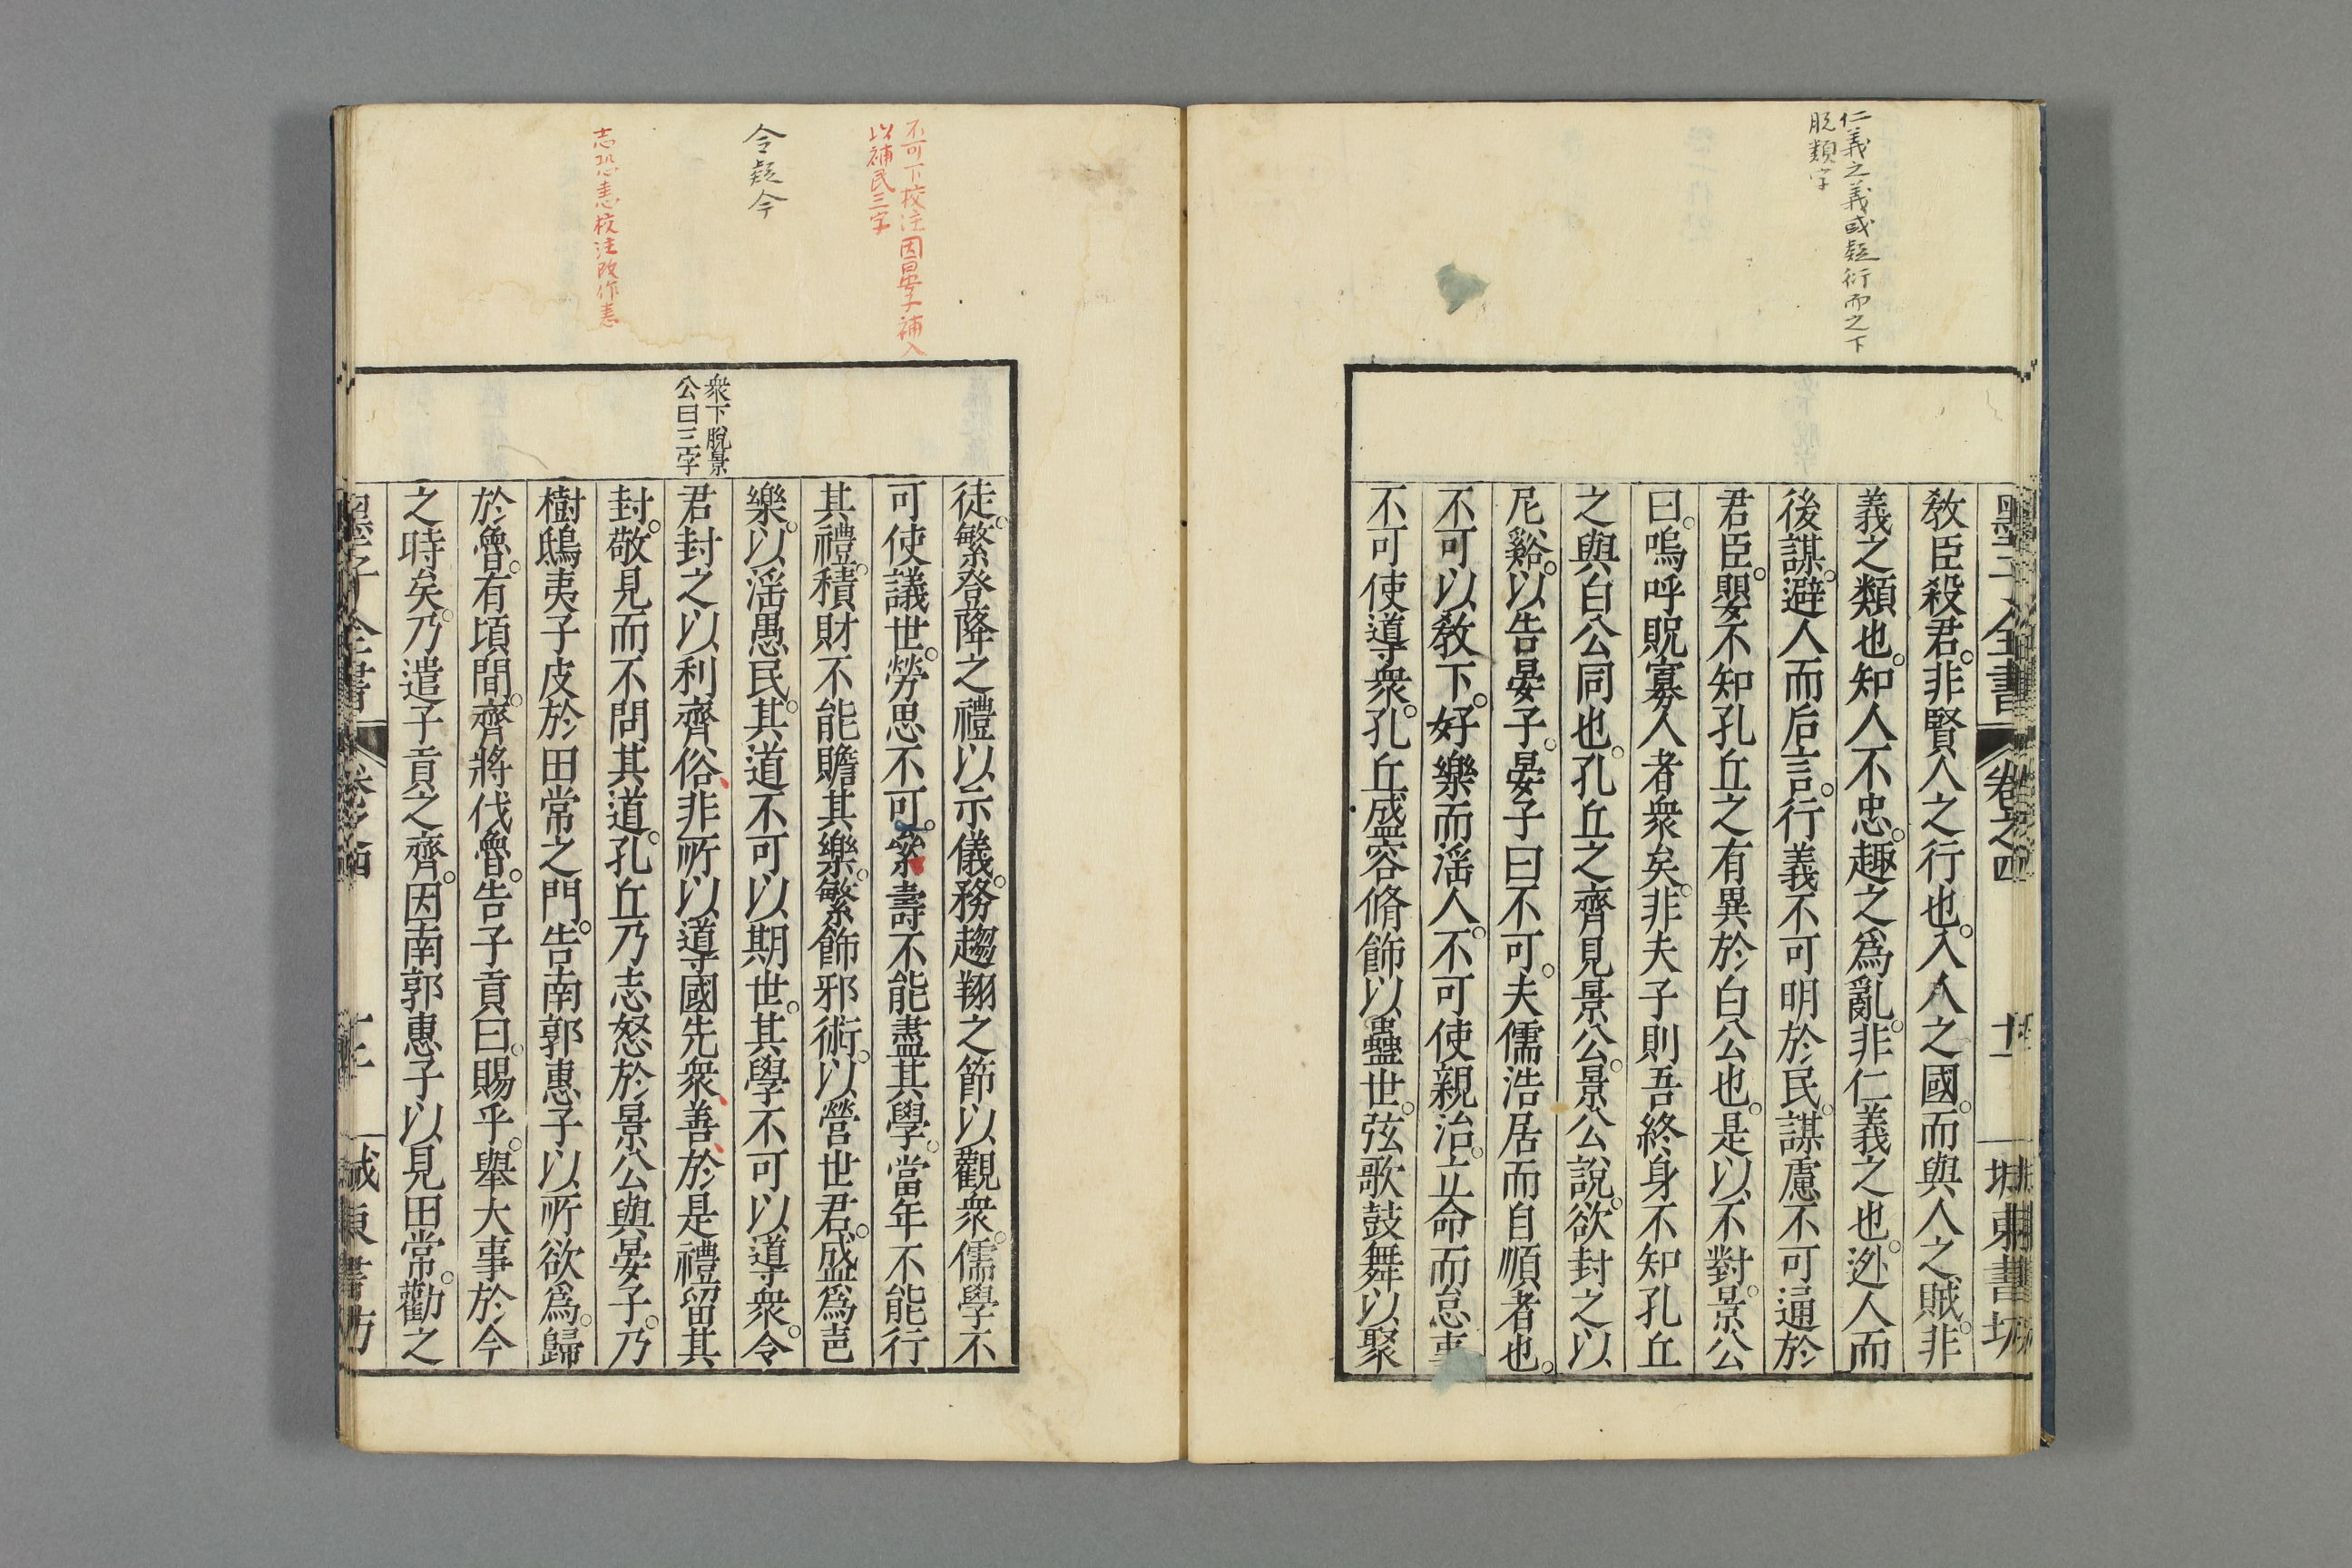 仁義之義或疑衍而之下
脱類字
墨子全書 卷之四 十一 城東書坊
教臣殺君。非賢人之行也。入人之國。而與人之賊。非
義之類也。知人不忠。趣之爲亂。非仁義之也。逊人而
後謀。避人而后言。行義不可明於民。謀慮不可通於
君臣。嬰不知孔丘之有異於白公也。是以不對。景公
曰。嗚呼貺寡人者衆矣。非夫子則吾終身不知孔丘
之與白公同也。孔丘之齊見景公。景公說。欲封之以
尼谿。以告晏子。晏子曰不可。夫儒浩居而自順者也。
不可以教下。好樂而淫人。不可使親治。立命而怠事
不可使導衆。孔丘盛容脩飾以蠱世。弦歌鼓舞以聚
不可下校注因晏子補入
以補民三字
令疑今
志恐恚校注改作恚
衆下脫景
公曰三字
徒。繁登降之禮以示儀。務趨翔之節以觀衆。儒學不
可使議世。勞思不可。絫壽不能盡其學。當年不能行
其禮。積財不能贍其樂。繁飾邪術。以營世君。盛爲聲
樂。以淫愚民。其道不可以期世。其學不可以導衆。令
君封之以利齊俗非所以導國先衆善於是禮留其
封。敬見而不問其道。孔丘乃志怒於景公與晏子。乃
樹鴟夷子皮於田常之門。告南郭惠子以所欲爲。歸
於魯。有頃間。齊將伐魯。告子貢曰。賜乎。舉大事於今
之時矣。乃遣子貢之齊。因南郭惠子以見田常。勸之
墨子全書 卷之四
城東書坊